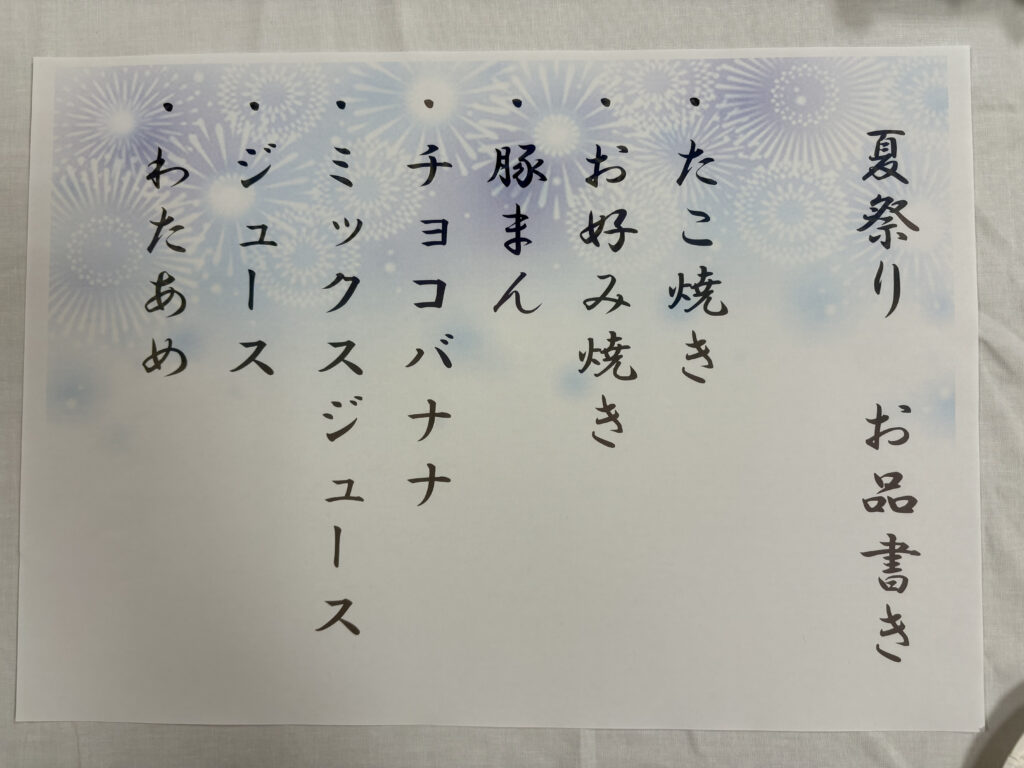 夏祭り　お品書き
・たこ焼き
・お好み焼き
・豚まん
・チョコバナナ
・ミックスジュース
・ジュース
・わたあめ